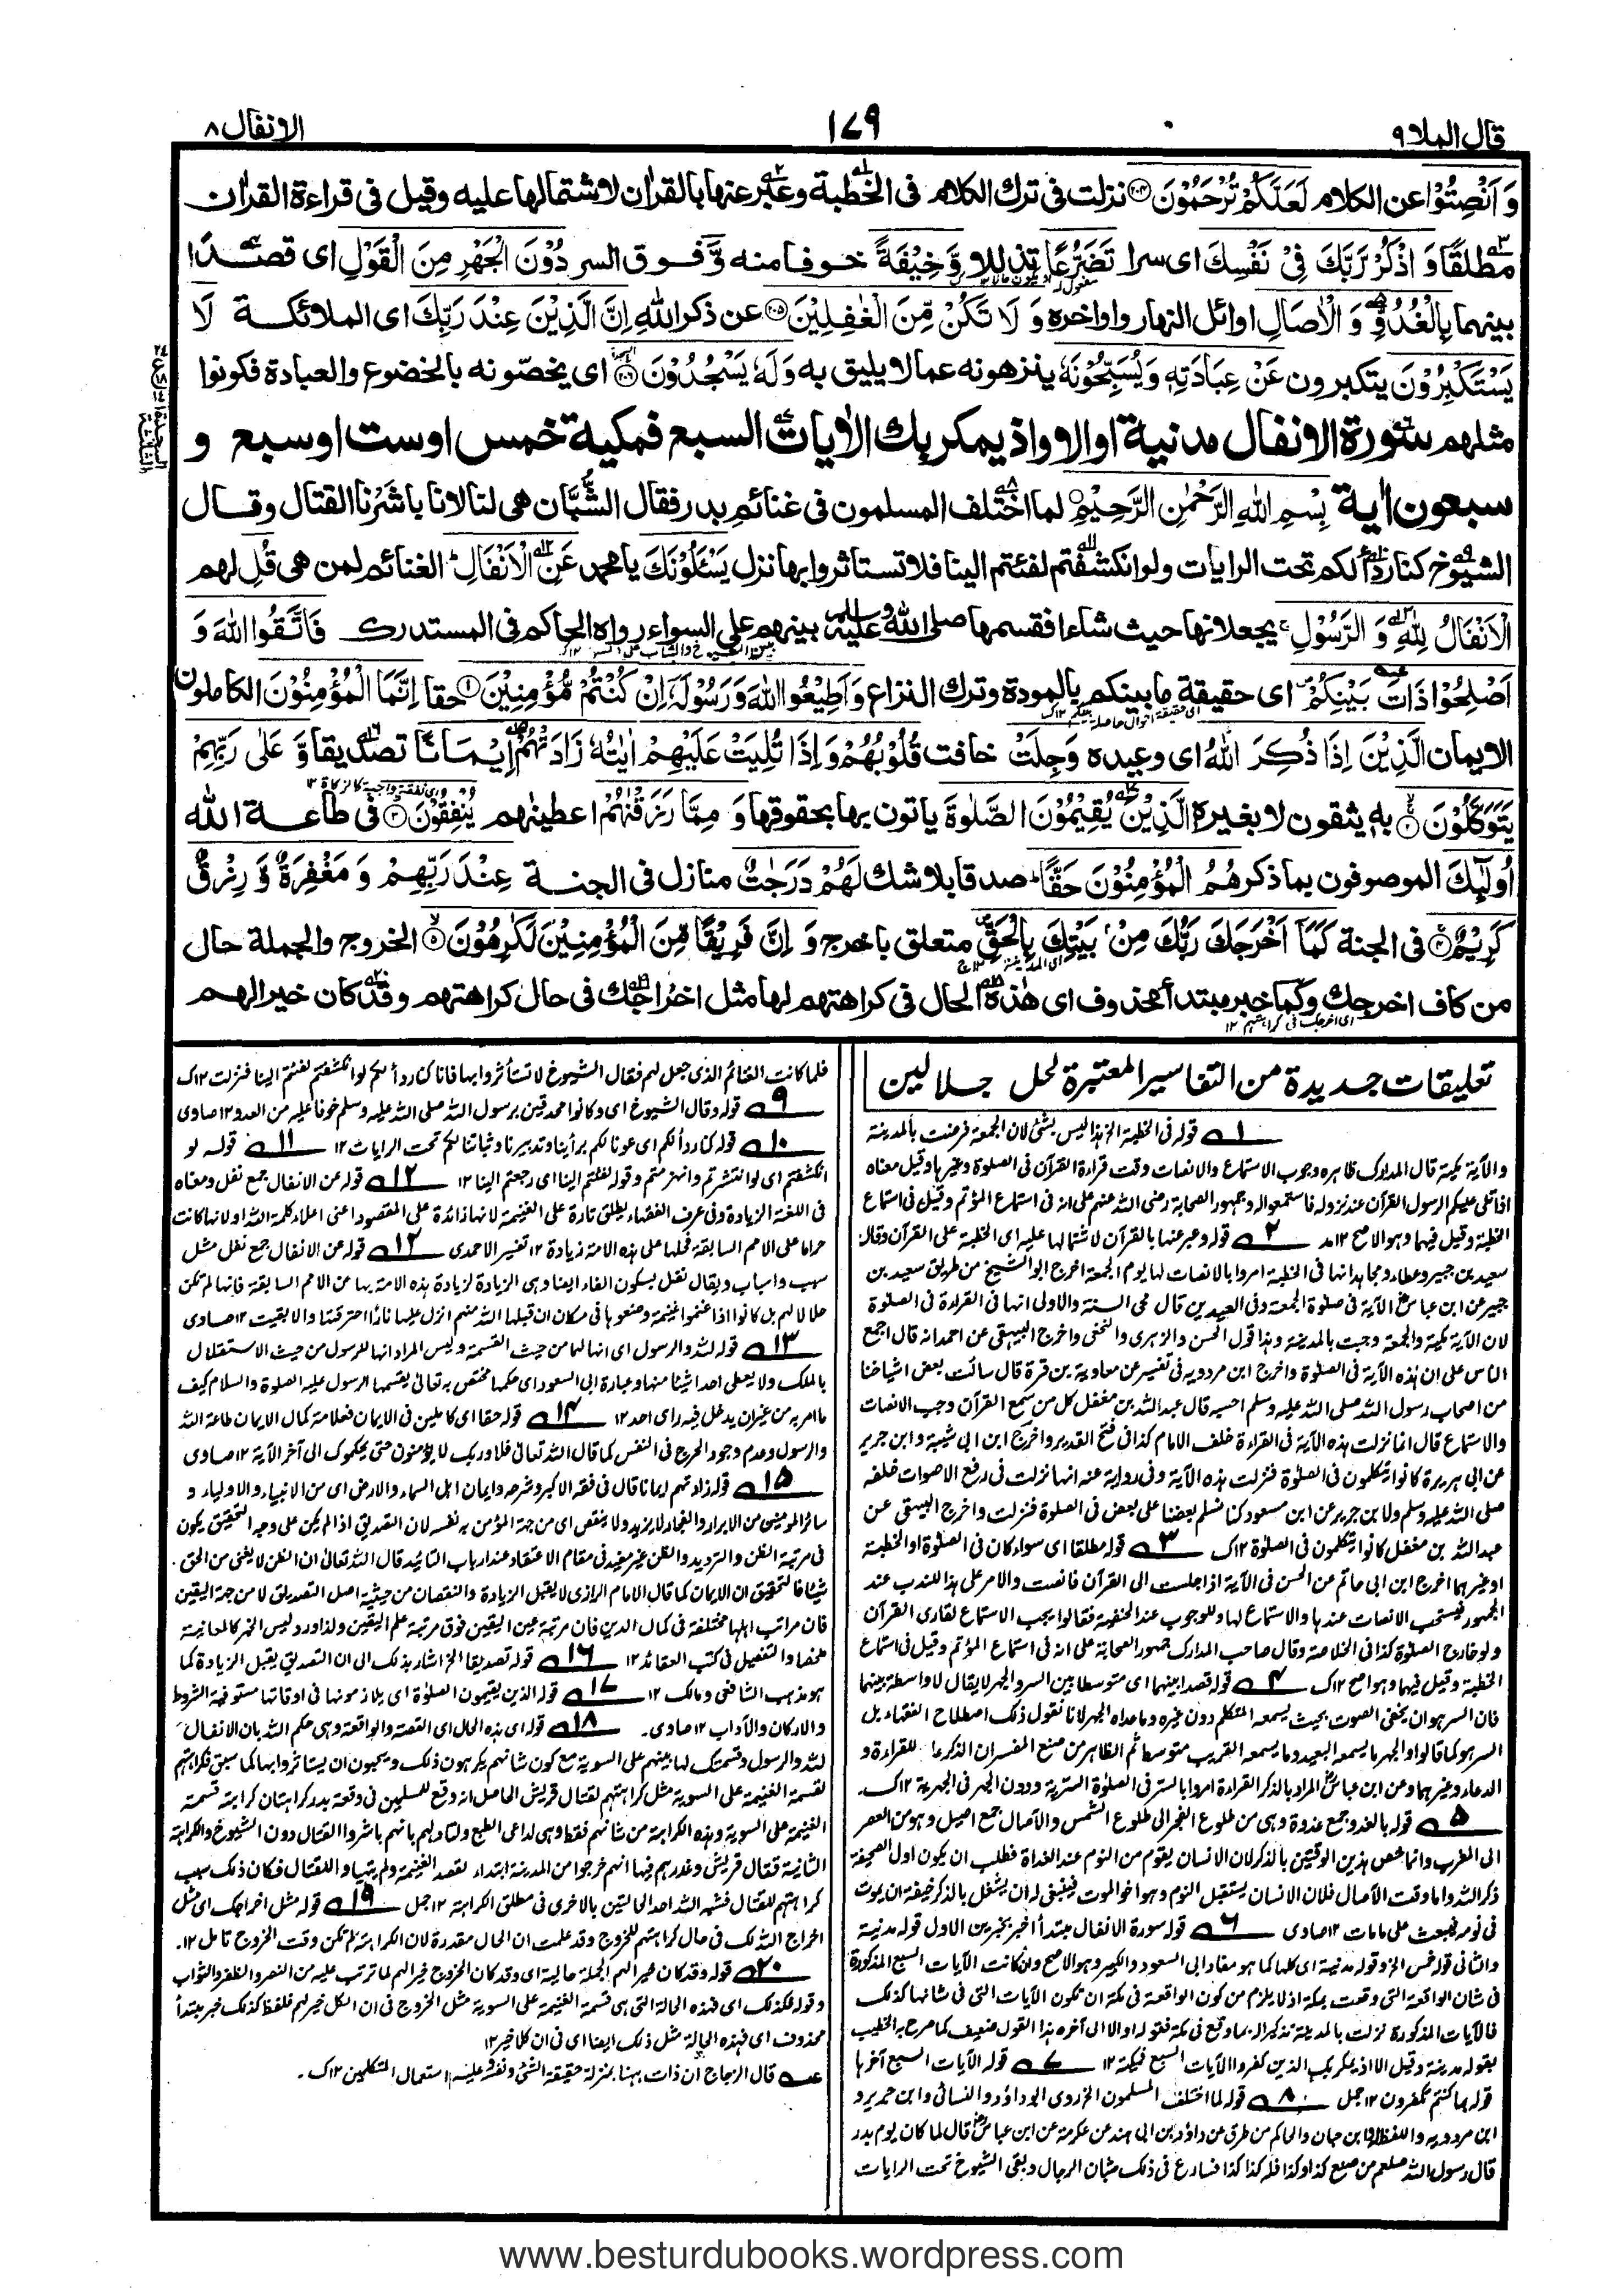 قال الملا ٩
١٧٩
الانفال ٨
وَ اَنْصِتُوْا عن الكلام لَعَلَّكُمْ تُرْحَمُوْنَ ﴿٢٠٤﴾ نزلت فى ترك الكلام فى الخطبة وعبر عنها بالقراٰن لاشتمالها عليه وقيل فى قراءة القراٰن
مطلقًا وَ اذْكُرْ رَّبَّكَ فِيْ نَفْسِكَ اى سرا تَضَرُّعًا تذللا وَّخِيْفَةً خوفا منه وَّ فوق السر دُوْنَ الْجَهْرِ مِنَ الْقَوْلِ اى قصدًا
بينهما بِالْغُدُوِّ وَ الْاٰصَالِ اوائل النهار واواخره وَ لَا تَكُنْ مِّنَ الْغٰفِلِيْنَ ﴿٢٠٥﴾ عن ذكر الله اِنَّ الَّذِيْنَ عِنْدَ رَبِّكَ اى الملائكة لَا
يَسْتَكْبِرُوْنَ يتكبرون عَنْ عِبَادَتِهٖ وَيُسَبِّحُوْنَهٗ ينزهونه عما لا يليق به وَلَهٗ يَسْجُدُوْنَ ﴿٢٠٦﴾ اى يخصّونه بالخضوع والعبادة فكونوا
مثلهم سورة الانفال مدنية او الا واذ يمكر بك الاٰيات السبع فمكية خمس او ست او سبع و
سبعون اٰية بِسْمِ اللهِ الرَّحْمٰنِ الرَّحِيْمِ لما اختلف المسلمون فى غنائم بدر فقال الشُّبَّان هى لنا لانا باشَرْنا القتال وقال
الشيوخ كنا ردأً لكم تحت الرايات ولو انكشفتم لفئتم الينا فلا تستاثروا بها نزل يَسْـَٔلُوْنَكَ يا محمد عَنِ الْاَنْفَالِ الغنائم لمن هى قُلِ لهم
الْاَنْفَالُ لِلّٰهِ وَ الرَّسُوْلِ يجعلانها حيث شاءا فقسمها صلى الله عليه وسلم بينهم على السواء رواه الحاكم فى المستدرك فَاتَّقُوا اللهَ وَ
اَصْلِحُوْا ذَاتَ بَيْنِكُمْ اى حقيقة ما بينكم بالمودة وترك النزاع وَاَطِيْعُوا اللهَ وَرَسُوْلَهٗ اِنْ كُنْتُمْ مُّؤْمِنِيْنَ ﴿١﴾ حقا اِنَّمَا الْمُؤْمِنُوْنَ الكاملون
الايمان الَّذِيْنَ اِذَا ذُكِرَ اللهُ اى وعيده وَجِلَتْ خافت قُلُوْبُهُمْ وَاِذَا تُلِيَتْ عَلَيْهِمْ اٰيٰتُهٗ زَادَتْهُمْ اِيْمَانًا تصديقا وَّ عَلٰى رَبِّهِمْ
يَتَوَكَّلُوْنَ ﴿٢﴾ به يثقون لا بغيره الَّذِيْنَ يُقِيْمُوْنَ الصَّلٰوةَ ياتون بها بحقوقها وَ مِمَّا رَزَقْنٰهُمْ اعطينٰهم يُنْفِقُوْنَ ﴿٣﴾ فى طاعة الله
اُولٰٓئِكَ الموصوفون بما ذكر هُمُ الْمُؤْمِنُوْنَ حَقًّا صدقا بلا شك لَهُمْ دَرَجٰتٌ منازل فى الجنة عِنْدَ رَبِّهِمْ وَ مَغْفِرَةٌ وَّ رِزْقٌ
كَرِيْمٌ ﴿٤﴾ فى الجنة كَمَآ اَخْرَجَكَ رَبُّكَ مِنْۢ بَيْتِكَ بِالْحَقِّ متعلق باخرج وَ اِنَّ فَرِيْقًا مِّنَ الْمُؤْمِنِيْنَ لَكٰرِهُوْنَ ﴿٥﴾ الخروج والجملة حال
من كاف اخرجك وكما خبر مبتدأ محذوف اى هٰذه الحال فى كراهتهم لها مثل اخراجك فى حال كراهتهم وقد كان خيرا لهم
تعليقات جديدة من التفاسير المعتبرة لحل جلالين
١ قوله فى الخطبة الخ هذا ليس بشئ لان الجمعة فرضت بالمدينة
والآية مكية قال المدارك ظاهره وجوب الاستماع والانصات وقت قراءة القرآن فى الصلوة وغيرها وقيل معناه
اذا تلى عليكم الرسول القرآن عند نزوله فاستمعوا له وجمهور الصحابة رضى الله عنهم على انه فى استماع المؤتم وقيل فى استماع
الخطبة وقيل فيهما وهو الاصح ١٢ مد ٢ قوله وعبر عنها بالقرآن لاشتمالها عليه اى الخطبة على القرآن وقال
سعيد بن جبير وعطاء ومجاهد انها فى الخطبة امروا بالانصات لها يوم الجمعة اخرج ابو الشيخ من طريق سعيد بن
جبير عن ابن عباس الآية فى صلوة الجمعة وفى العيدين قال محى السنة والاولى انها فى القراءة فى الصلوة
لان الآية مكية والجمعة وجبت بالمدينة وهذا قول الحسن والزهرى والنخعى واخرج البيهقى عن احمد انه قال اجمع
الناس على ان هذه الآية فى الصلوة واخرج ابن مردويه فى تفسير عن معاوية بن قرة قال سألت بعض اشياخنا
من اصحاب رسول الله صلى الله عليه وسلم احسبه قال عبد الله بن مغفل كل من سمع القرآن وجب الانصات
والاستماع قال انما نزلت هذه الآية فى القراءة خلف الامام كذا فى فتح القدير واخرج ابن ابى شيبة وابن جرير
عن ابى هريرة كانوا يتكلمون فى الصلوة فنزلت هذه الآية وفى رواية عنه انها نزلت فى رفع الاصوات خلفه
صلى الله عليه وسلم ولابن جرير عن ابن مسعود كنا نسلم بعضنا على بعض فى الصلوة فنزلت واخرج البيهقى عن
عبد الله بن مغفل كانوا يتكلمون فى الصلوة ١٢ ك ٣ قوله مطلقا اى سواء كان فى الصلوة او الخطبة
او غيرهما اخرج ابن ابى حاتم عن الحسن فى الآية اذا جلست الى القرآن فانصت والامر على هذا للندب عند
الجمهور فيستحب الانصات عندها والاستماع لها وللوجوب عند الحنفية فقالوا يجب الاستماع لقارى القرآن
ولو خارج الصلوة كذا فى الخلاصة وقال صاحب المدارك جمهور الصحابة على انه فى استماع المؤتم وقيل فى استماع
الخطبة وقيل فيهما وهو اصح ١٢ ك ٤ قوله قصدا بينهما اى متوسطا بين السر والجهر لا يقال لا واسطة بينهما
فان السر هو ان يخفى الصوت بحيث يسمعه المتكلم دون غيره وما عداه الجهر لانا نقول ذلك اصطلاح الفقهاء بل
السر هو كما قالوا والجهر ما يسمعه البعيد وما يسمعه القريب متوسط ثم الظاهر من صنع المفسر ان الذكر عام للقراءة و
الدعاء وغيرهما وعن ابن عباس المراد بالذكر القراءة امروا بالسر فى الصلوة السرية ودون الجهر فى الجهرية ١٢ ك
٥ قوله بالغدو جمع غدوة وهى من طلوع الفجر الى طلوع الشمس والآصال جمع اصيل وهو من العصر
الى المغرب وانما خص هذين الوقتين بالذكر لان الانسان يقوم من النوم عند الغداة فطلب ان يكون اول الصحيفة
ذكر الله واما وقت الآصال فلان الانسان يستقبل النوم وهو اخو الموت فينبغى له ان يشغل بالذكر خيفة ان يموت
فى نومه فيبعث على ما مات ١٢ صاوى ٦ قوله سورة الانفال مبتدأ اخبر بخبرين الاول قوله مدنية
والثانى قوله خمس الخ وقوله مدنية اى كلها كما هو مفاد ابى السعود والكبير وهو الاصح وان كانت الآيات السبع المذكورة
فى شان الواقعة التى وقعت بمكة اذ لا يلزم من كون الواقعة فى مكة ان تكون الآيات التى فى شانها كذلك
فالآيات المذكورة نزلت بالمدينة تذكيرا له بما وقع فى مكة فقوله او الا الى آخره هذا القول ضعيف كما صرح به الخطيب
بقوله مدنية وقيل الا اذ يمكر بك الذين كفروا الآيات السبع فمكية ١٢ ٧ قوله الآيات السبع آخرها
قوله بما كنتم تكفرون ١٢ جمل ٨ قوله لما اختلف المسلمون الخ روى ابو داؤد والنسائى وابن جرير و
ابن مردويه واللفظ له وابن حبان والحاكم من طرق عن داؤد بن ابى هند عن عكرمة عن ابن عباس قال لما كان يوم بدر
قال رسول الله صلعم من صنع كذا وكذا فله كذا كذا فسارع فى ذلك شبان الرجال وبقى الشيوخ تحت الرايات
فلما كانت الغنائم الذى جعل لهم فقال الشيوخ لا تستأثروا بها فانا كنا ردأ لكم لو انكشفتم لفئتم الينا فنزلت ١٢ ك
٩ قوله وقال الشيوخ اى وكانوا محدقين برسول الله صلى الله عليه وسلم خوفا عليه من العدو ١٢ صاوى
١٠ قوله كنا ردأ لكم اى عونا لكم برأينا وتدبيرنا وثباتنا لكم تحت الرايات ١٢ ١١ قوله لو
انكشفتم اى لو انتشرتم وانهزمتم وقوله لفئتم الينا اى رجعتم الينا ١٢ ١٢ قوله عن الانفال جمع نفل ومعناه
فى اللغة الزيادة وفى عرف الفقهاء يطلق تارة على الغنيمة لانها زائدة على المقصود اعنى اعلاء كلمة الله او لانها كانت
حراما على الامم السابقة فحلها على هذه الامة زيادة ١٢ تفسير الاحمدى ١٢ قوله عن الانفال جمع نفل مثل
سبب واسباب ويقال نفل بسكون الفاء ايضا وهى الزيادة لزيادة هذه الامة بها عن الامم السابقة فانها لم تكن
حلالا لهم بل كانوا اذا غنموا غنيمة وضعوها فى مكان ان قبلها الله منهم انزل عليها نارًا احرقتها والا بقيت ١٢ صاوى
١٣ قوله لله والرسول اى انها لهما من حيث القسمة وليس المراد انها للرسول من حيث الاستقلال
بالملك ولا يعطى احدا شيئا منها وعبارة ابى السعود اى حكمها مختص به تعالى يقسمها الرسول عليه الصلوة والسلام كيف
ما امر به من غير ان يدخل فيه راى احد ١٢ ١٤ قوله حقا اى كاملين فى الايمان فعلامة كمال الايمان طاعة الله
والرسول وعدم وجود الحرج فى النفس كما قال الله تعالى فلا وربك لا يؤمنون حتى يحكموك الى آخر الآية ١٢ صاوى
١٥ قوله زادتهم ايمانا قال فى فقه الاكبر وشرحه وايمان اهل السماء والارض اى من الانبياء والاولياء و
سائر المومنين من الابرار والفجار لا يزيد ولا ينقص اى من جهة المؤمن به نفسه لان التصديق اذا لم يكن على وجه التحقيق يكون
فى مرتبة الظن والترديد والظن غير مفيد فى مقام الاعتقاد عند ارباب التائيد قال الله تعالى ان الظن لا يغنى من الحق
شيئا فالتحقيق ان الايمان كما قال الامام الرازى لا يقبل الزيادة والنقصان من حيثية اصل التصديق لا من جهة اليقين
فان مراتب اهلها مختلفة فى كمال الدين فان مرتبة عين اليقين فوق مرتبة علم اليقين ولذا ورد ليس الخبر كالمعاينة
ملخصا والتفصيل فى كتب العقائد ١٢ ١٦ قوله تصديقا الخ اشار بذلك الى ان التصديق يقبل الزيادة كما
هو مذهب الشافعى ومالك ١٢ ١٧ قوله الذين يقيمون الصلوة اى يلازمونها فى اوقاتها مستوفية الشروط
والاركان والآداب ١٢ صاوى ١٨ قوله اى هذه الحال اى القصة والواقعة وهى حكم الله بان الانفال
لله والرسول وقسمتك لها بينهم على السوية مع كون شانهم يكرهون ذلك ويحبون ان يستاثروا بها كما سبق فكراهتهم
لقسمة الغنيمة على السوية مثل كراهتهم لقتال قريش الحاصل انه وقع للمسلمين فى وقعة بدر كراهتان كراهة قسمة
الغنيمة على السوية وهذه الكراهة من شانهم فقط وهى لداعى الطبع ولتاويلهم بانهم باشروا القتال دون الشيوخ والكراهة
الثانية قتال قريش وعذرهم فيها انهم خرجوا من المدينة ابتداء لقصد الغنيمة ولم يتهياوا للقتال فكان ذلك سبب
كراهتهم للقتال فشبه الله احدى الحالتين بالاخرى فى مطلق الكراهة ١٢ جمل ١٩ قوله مثل اخراجك اى مثل
اخراج الله لك فى حال كراهتهم للخروج وقد علمت ان الحال مقدرة لان الكراهة لم تكن وقت الخروج تامل ١٢
٢٠ قوله وقد كان خيرا لهم الجملة حالية اى وقد كان الخروج خيرا لهم لما ترتب عليه من النصر والظفر والثواب
وقوله فكذلك اى فهذه الحالة التى هى قسمة الغنيمة على السوية مثل الخروج فى ان الكل خير لهم فلفظ كذلك خبر مبتدأ
محذوف اى فهذه الحالة مثل ذلك ايضا اى فى ان كلا خير ١٢
عه قال الزجاج ان ذات ههنا بمنزلة حقيقة الشئ ونفسه وعليه استعمال المتكلمين ١٢ ك
www.besturdubooks.wordpress.com